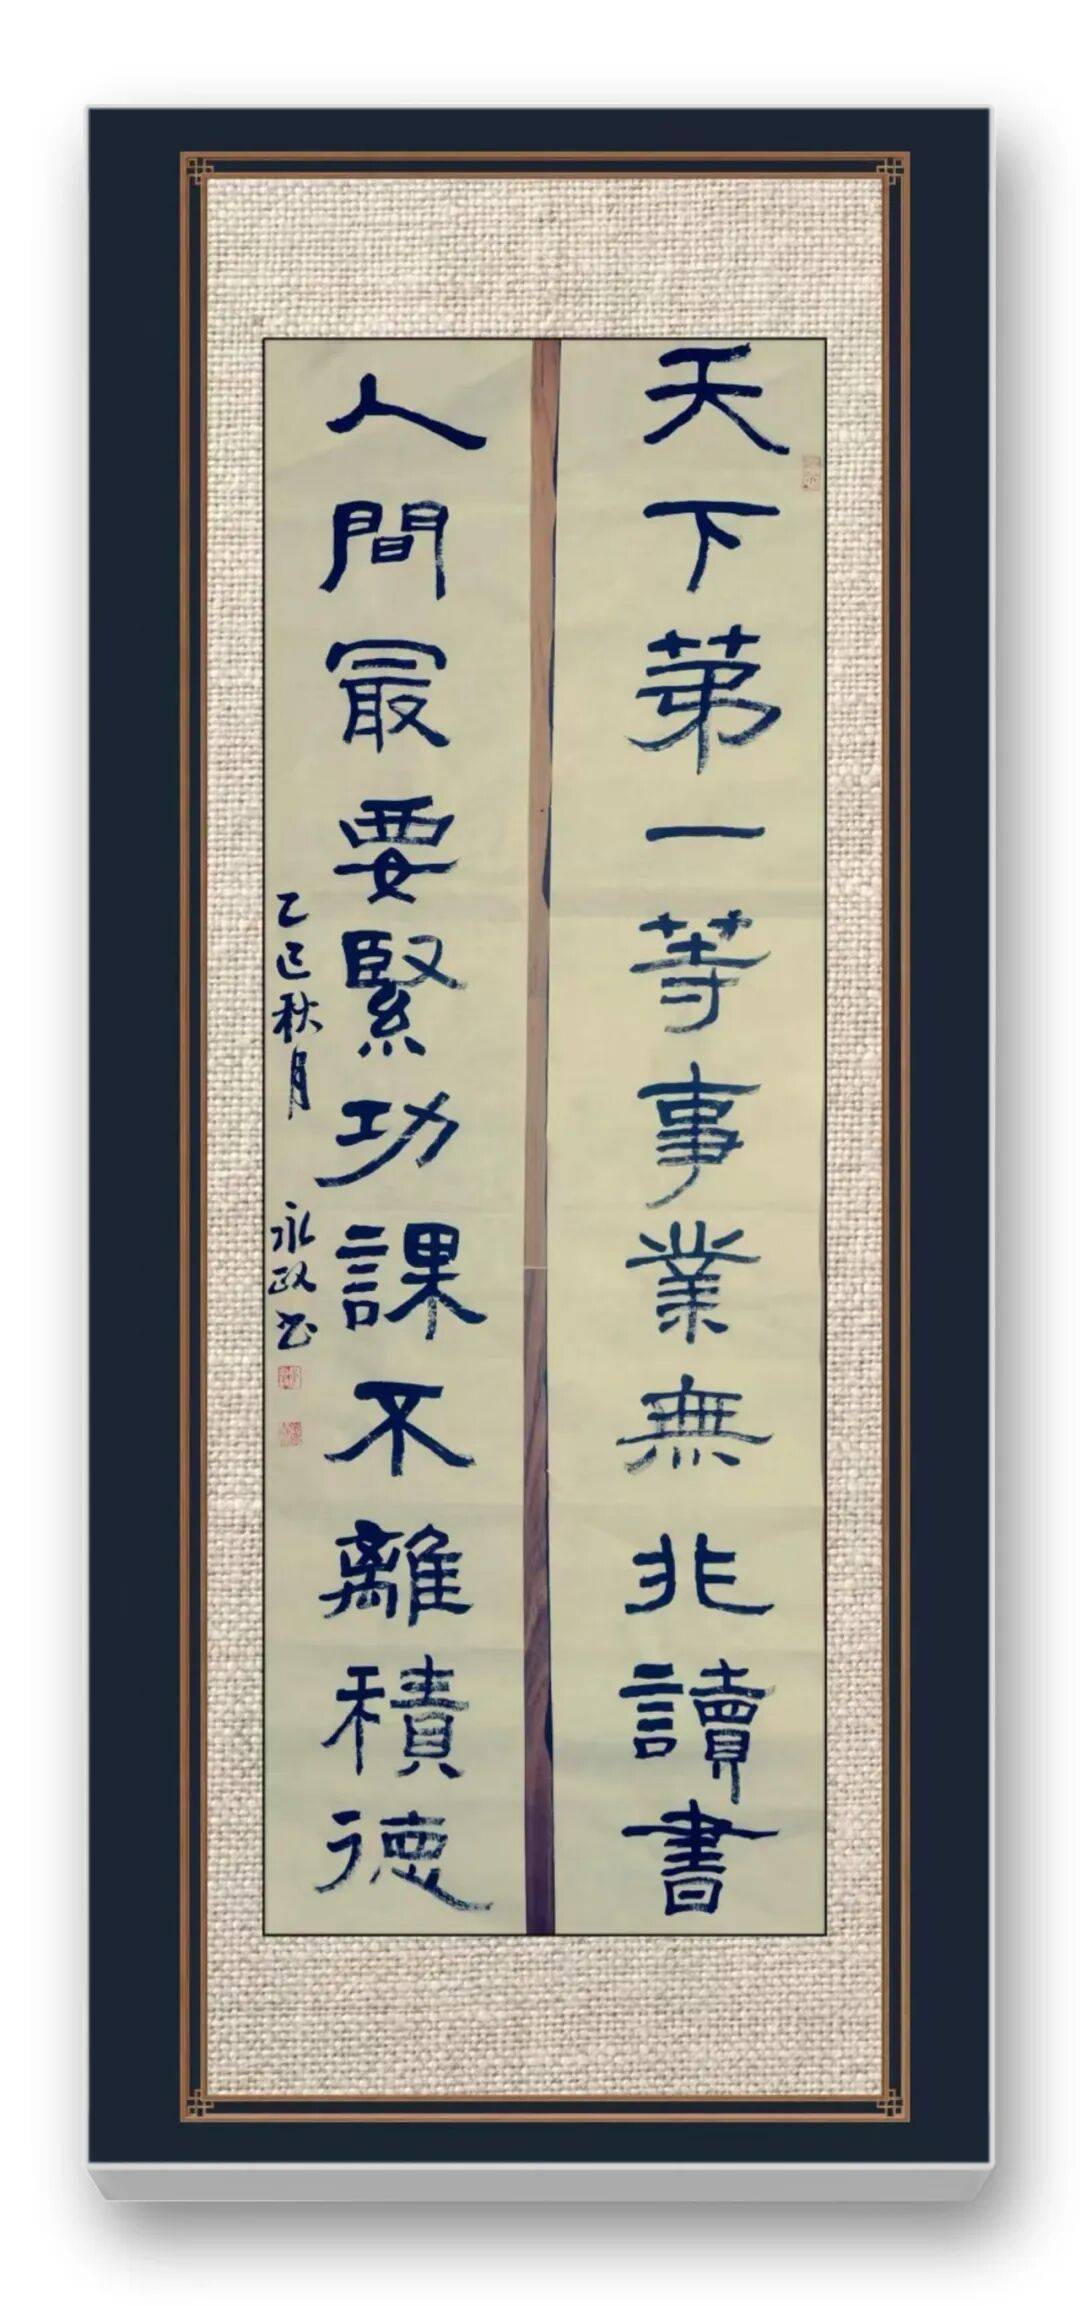 天下第一等事業無非讀書
人間最要緊功課不離積德
乙巳秋月 永政书